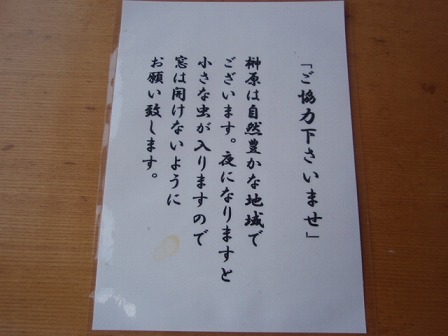 「ご協力下さいませ」
榊原は自然豊かな地域で
ございます。夜になりますと
小さな虫が入りますので
窓は開けないように
お願い致します。